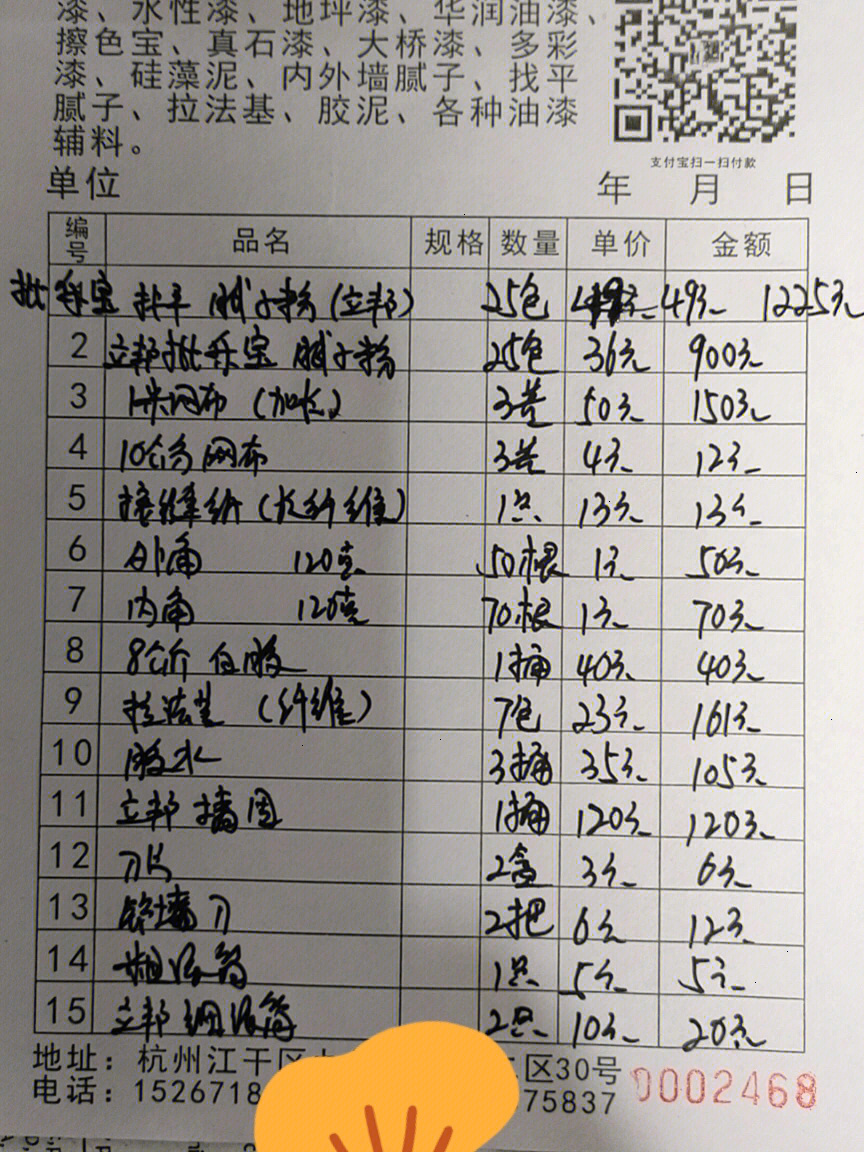 漆、水性漆、地坪漆、华润油漆、
擦色宝、真石漆、大桥漆、多彩
漆、硅藻泥、内外墙腻子、找平
腻子、拉法基、胶泥、各种油漆
辅料。
支付宝扫一扫付款
单位 年 月 日
编号 品名 规格 数量 单价 金额
批乐宝 找平 腻子粉(立邦) 25包 49元 1225元
2 立邦批乐宝 腻子粉 25包 36元 900元
3 1米网布(加长) 3卷 50元 150元
4 10公分网布 3卷 4元 12元
5 接缝纸(长纤维) 1只 13元 13元
6 外角 120克 50根 1元 50元
7 内角 120克 70根 1元 70元
8 8公斤 白胶 1桶 40元 40元
9 拉法基(纤维) 7包 23元 161元
10 胶水 3桶 35元 105元
11 立邦 墙固 1桶 120元 120元
12 刀片 2盒 3元 6元
13 铲墙刀 2把 6元 12元
14 粗滚筒 1只 5元 5元
15 立邦 细滚筒 2只 10元 20元
地址:杭州江干区 区30号
电话:1526718 75837
0002468